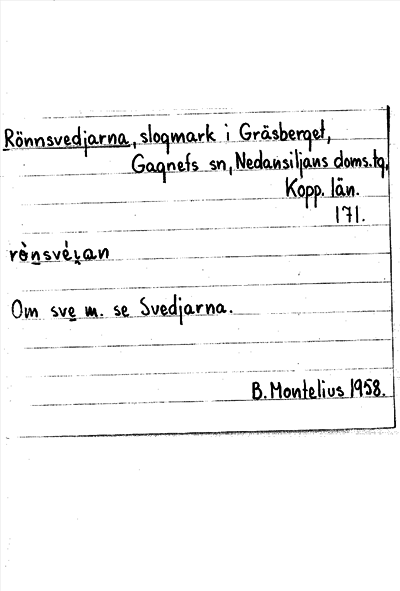 Rönnsvedjarna, slogmark i Gräsberget,
Gagnefs sn, Nedansiljans doms.tg,
Kopp. län.
171.
Om sve m. se Svedjarna.
B. Montelius 1958.